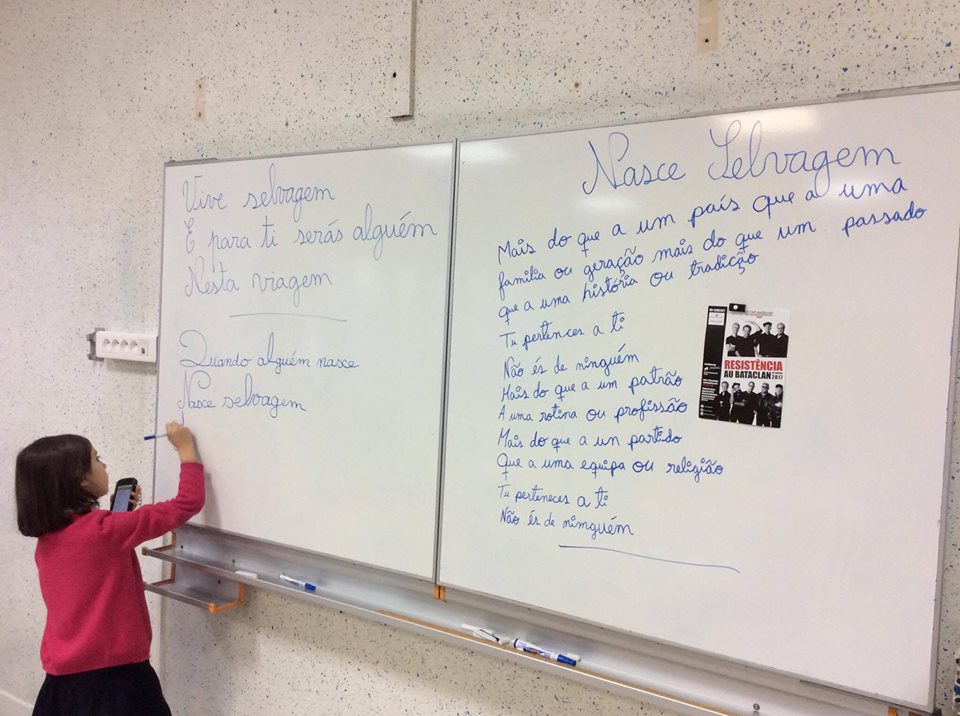 Vive selvagem
E para ti serás alguém
Nesta viagem
Quando alguém nasce
Nasce selvagem
Nasce Selvagem
Mais do que a um país que a uma
familia ou geração mais do que um passado
que a uma história ou tradição
Tu pertences a ti
Não és de ninguém
Mais do que a um patrão
A uma rotina ou profissão
Mais do que a un partido
Que a uma equipa ou religião
Tu perteneces a ti
Não és de nimguém
RESISTÊNCIA
AU BATACLAN
2017